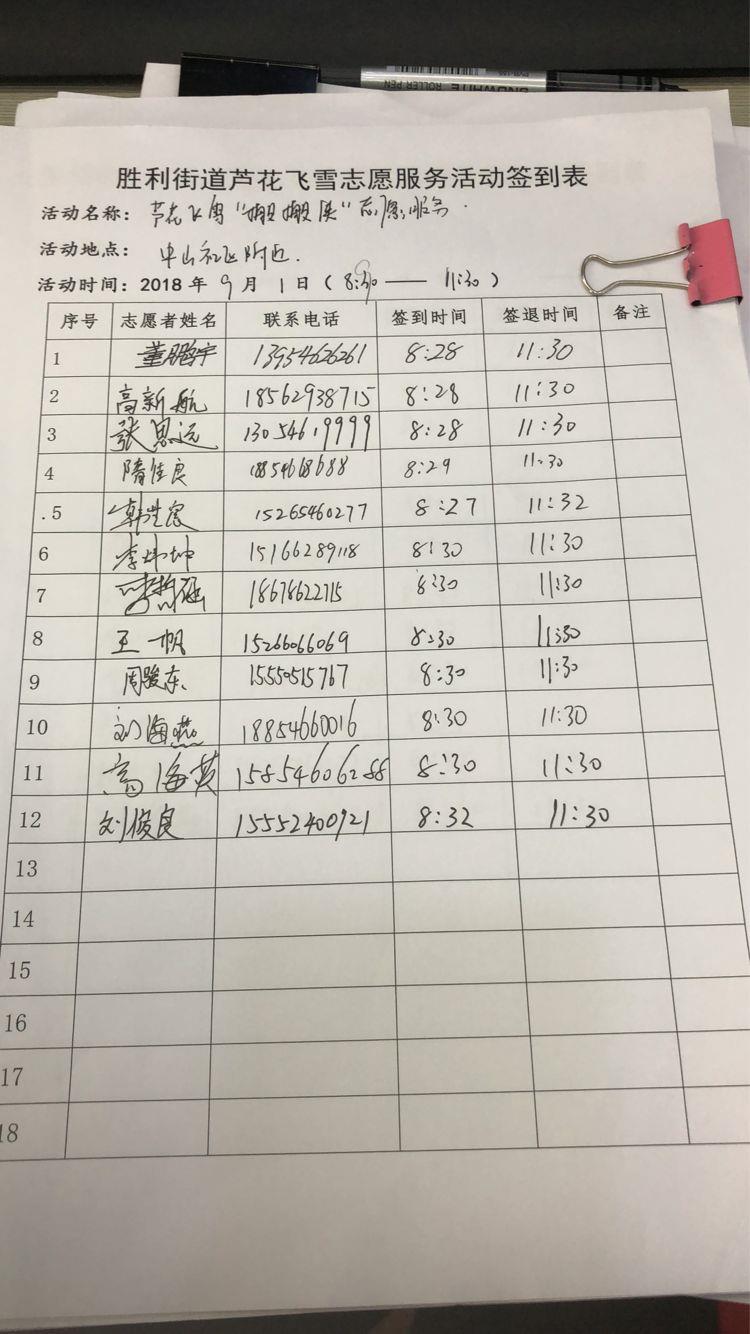 SNOWHITE ROLLER PEN
胜利街道芦花飞雪志愿服务活动签到表
活动名称：芦花飞雪"棚棚侠"志愿服务.
活动地点：中山社区附近.
活动时间：2018年9月1日（8:30——11:30）
序号 志愿者姓名 联系电话 签到时间 签退时间 备注
1 董鹏宇 13954626261 8:28 11:30
2 高新航 18562938715 8:28 11:30
3 张恩远 13054619999 8:28 11:30
4 隋佳良 18854668688 8:29 11:30
.5 韩洪宸 15265460277 8:27 11:32
6 李炜坤 15166289118 8:30 11:30
7 18678622715 8:30 11:30
8 王一帆 15266066069 8:30 11:30
9 周骏东 15550515767 8:30 11:30
10 刘海燕 18854660016 8:30 11:30
11 高海英 15854606288 8:30 11:30
12 刘俊良 15552400921 8:32 11:30
13
14
15
16
17
18